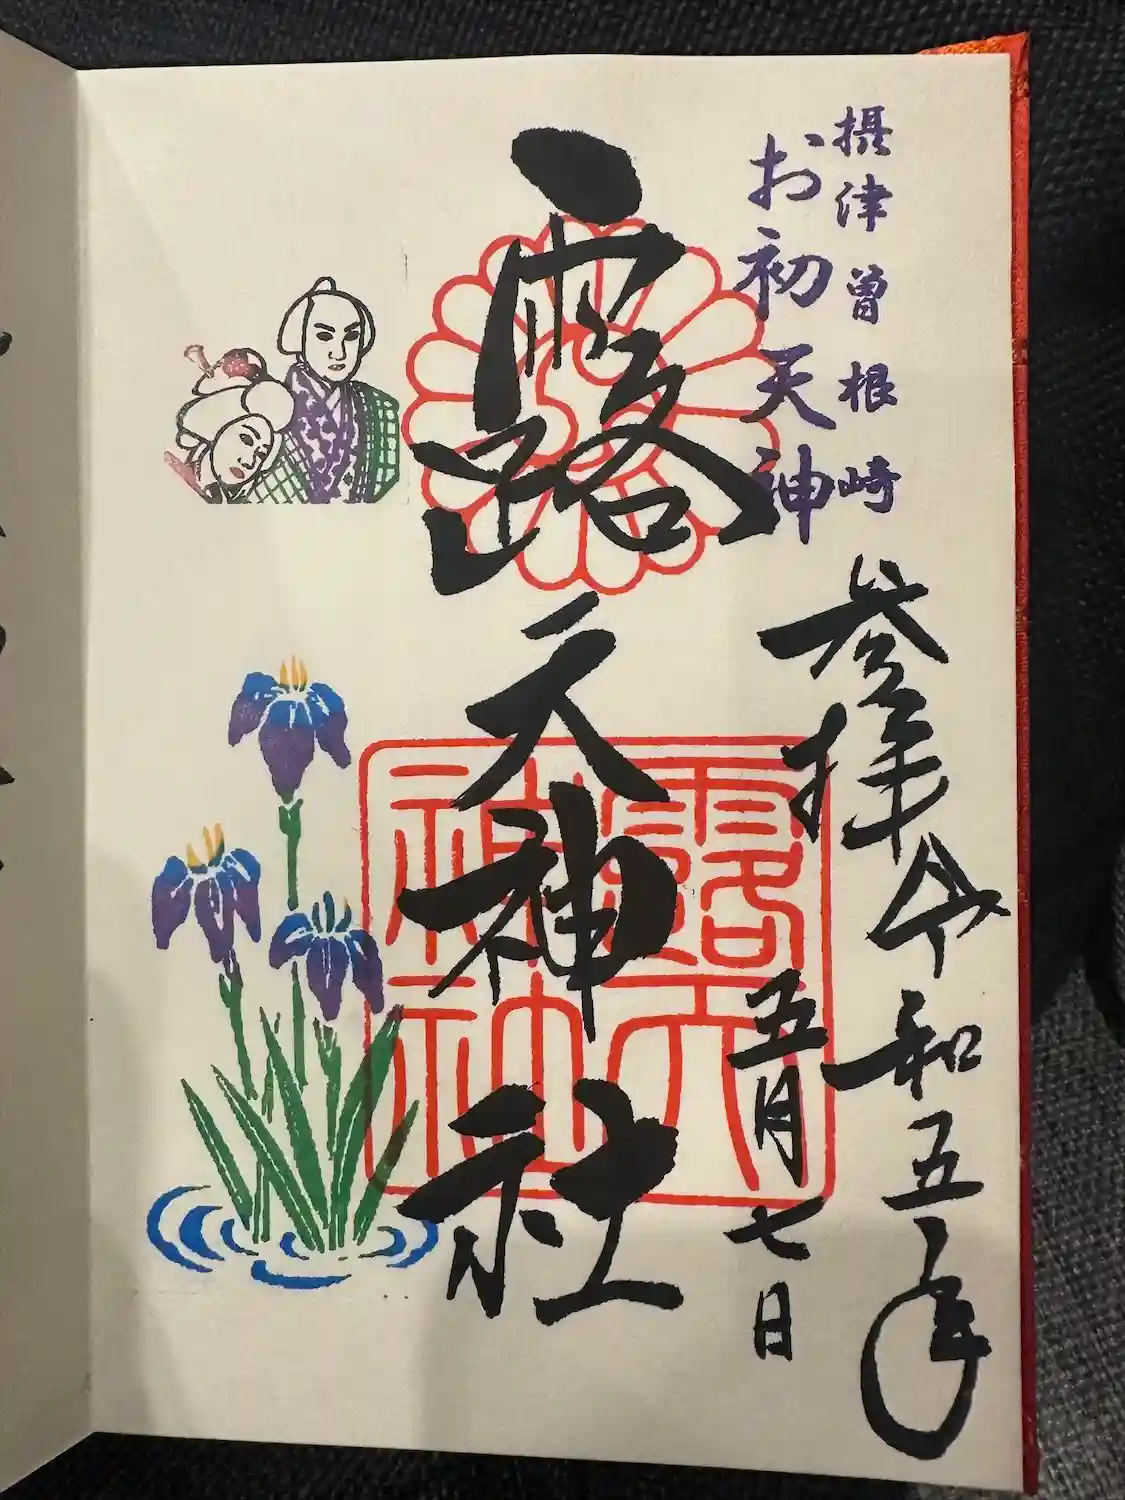 摂津曽根崎
お初天神
参拝令和五年
五月七日
露天神社
露天
神社